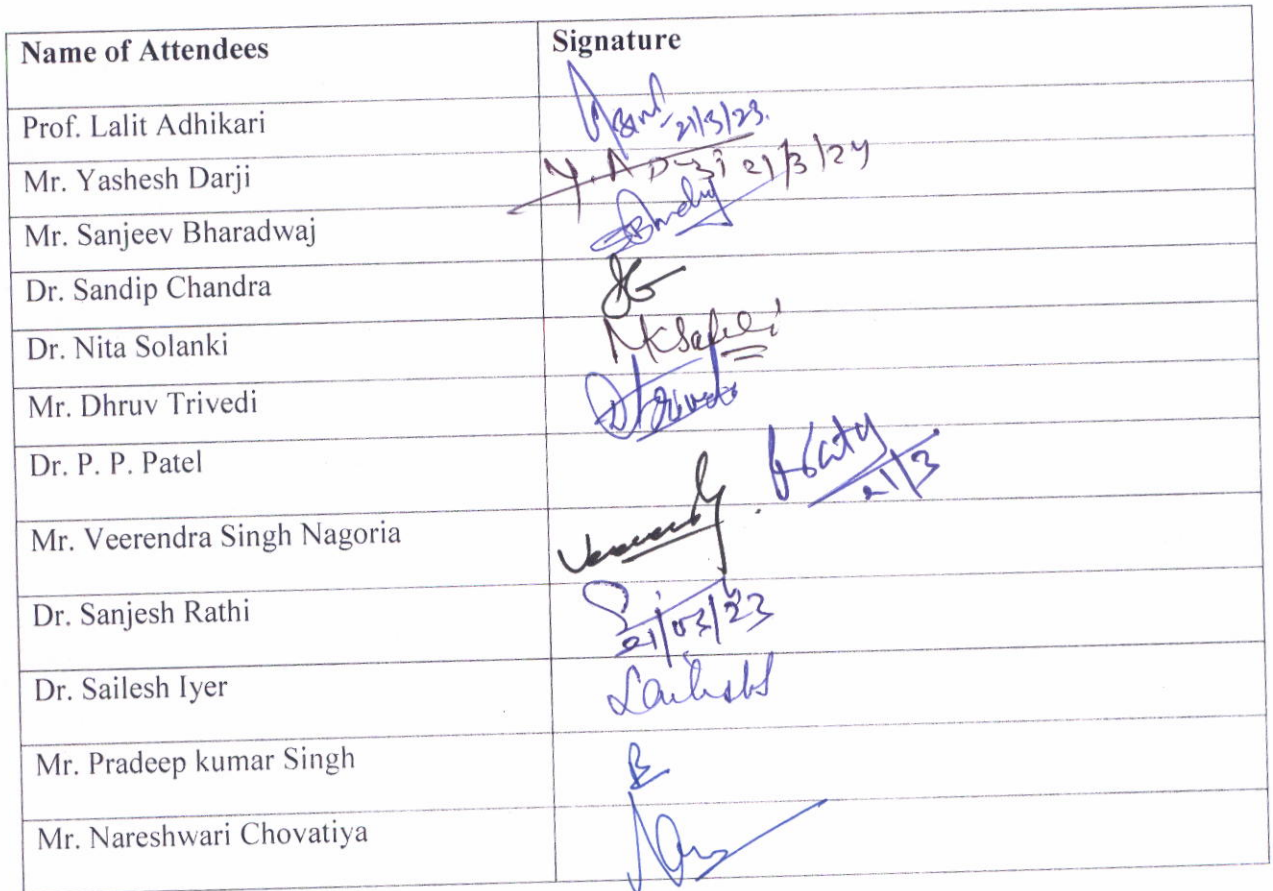 Name of Attendees Signature
Prof. Lalit Adhikari 21/3/23.
Mr. Yashesh Darji 21/3/24
Mr. Sanjeev Bharadwaj
Dr. Sandip Chandra
Dr. Nita Solanki
Mr. Dhruv Trivedi
Dr. P. P. Patel 21/3
Mr. Veerendra Singh Nagoria
Dr. Sanjesh Rathi 21/03/23
Dr. Sailesh Iyer
Mr. Pradeep kumar Singh
Mr. Nareshwari Chovatiya